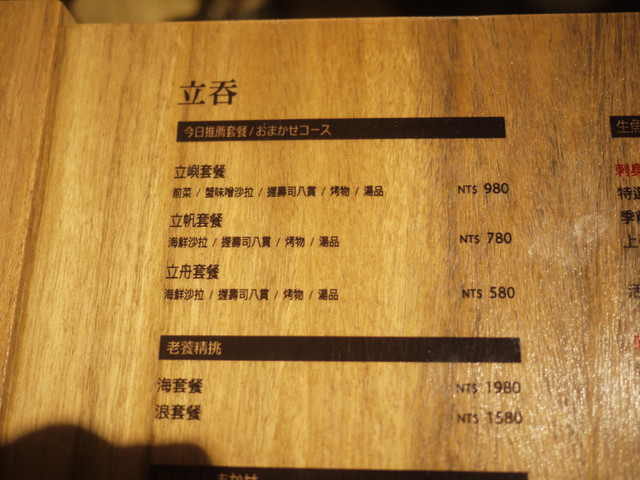 立吞
今日推薦套餐 / おまかせコース
立嶼套餐
前菜 / 蟹味噌沙拉 / 握壽司八貫 / 烤物 / 湯品 NT$ 980
立帆套餐
海鮮沙拉 / 握壽司八貫 / 烤物 / 湯品 NT$ 780
立舟套餐
海鮮沙拉 / 握壽司八貫 / 烤物 / 湯品 NT$ 580
老饕精挑
海套餐 NT$ 1980
浪套餐 NT$ 1580
生魚
刺身
特選
季節
上
活